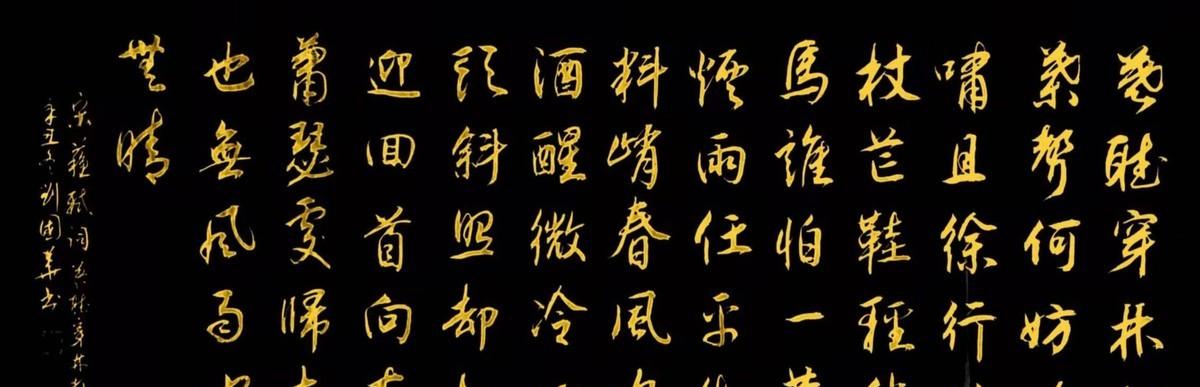 莫聽穿林
葉聲何妨
嘯且徐行
杖芒鞋輕
馬誰怕一
煙雨任平
料峭春風
酒醒微冷
頭斜照却
迎回首向
蕭瑟處歸
也無風雨
無晴
宋蘇軾詞莫聽穿林
辛丑劉國華书